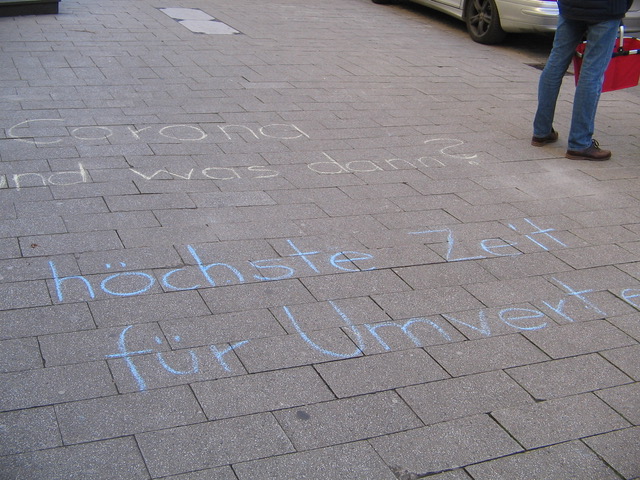 Corona
und was dann?
höchste Zeit
für Umverte